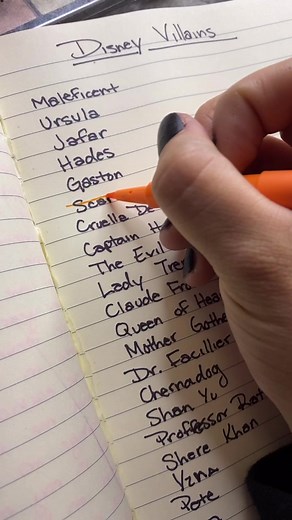 Disney Villains
Maleficent
Ursula
Jafar
Hades
Gaston
Scar
Cruella De
Captain H
The Evil
Lady Tre
Claude Fr
Queen of Hea
Mother Gothe
Dr. Facilier
Chernadog
Shan Yu
Proffessor Rat
Shere Khan
Yzma
Pete